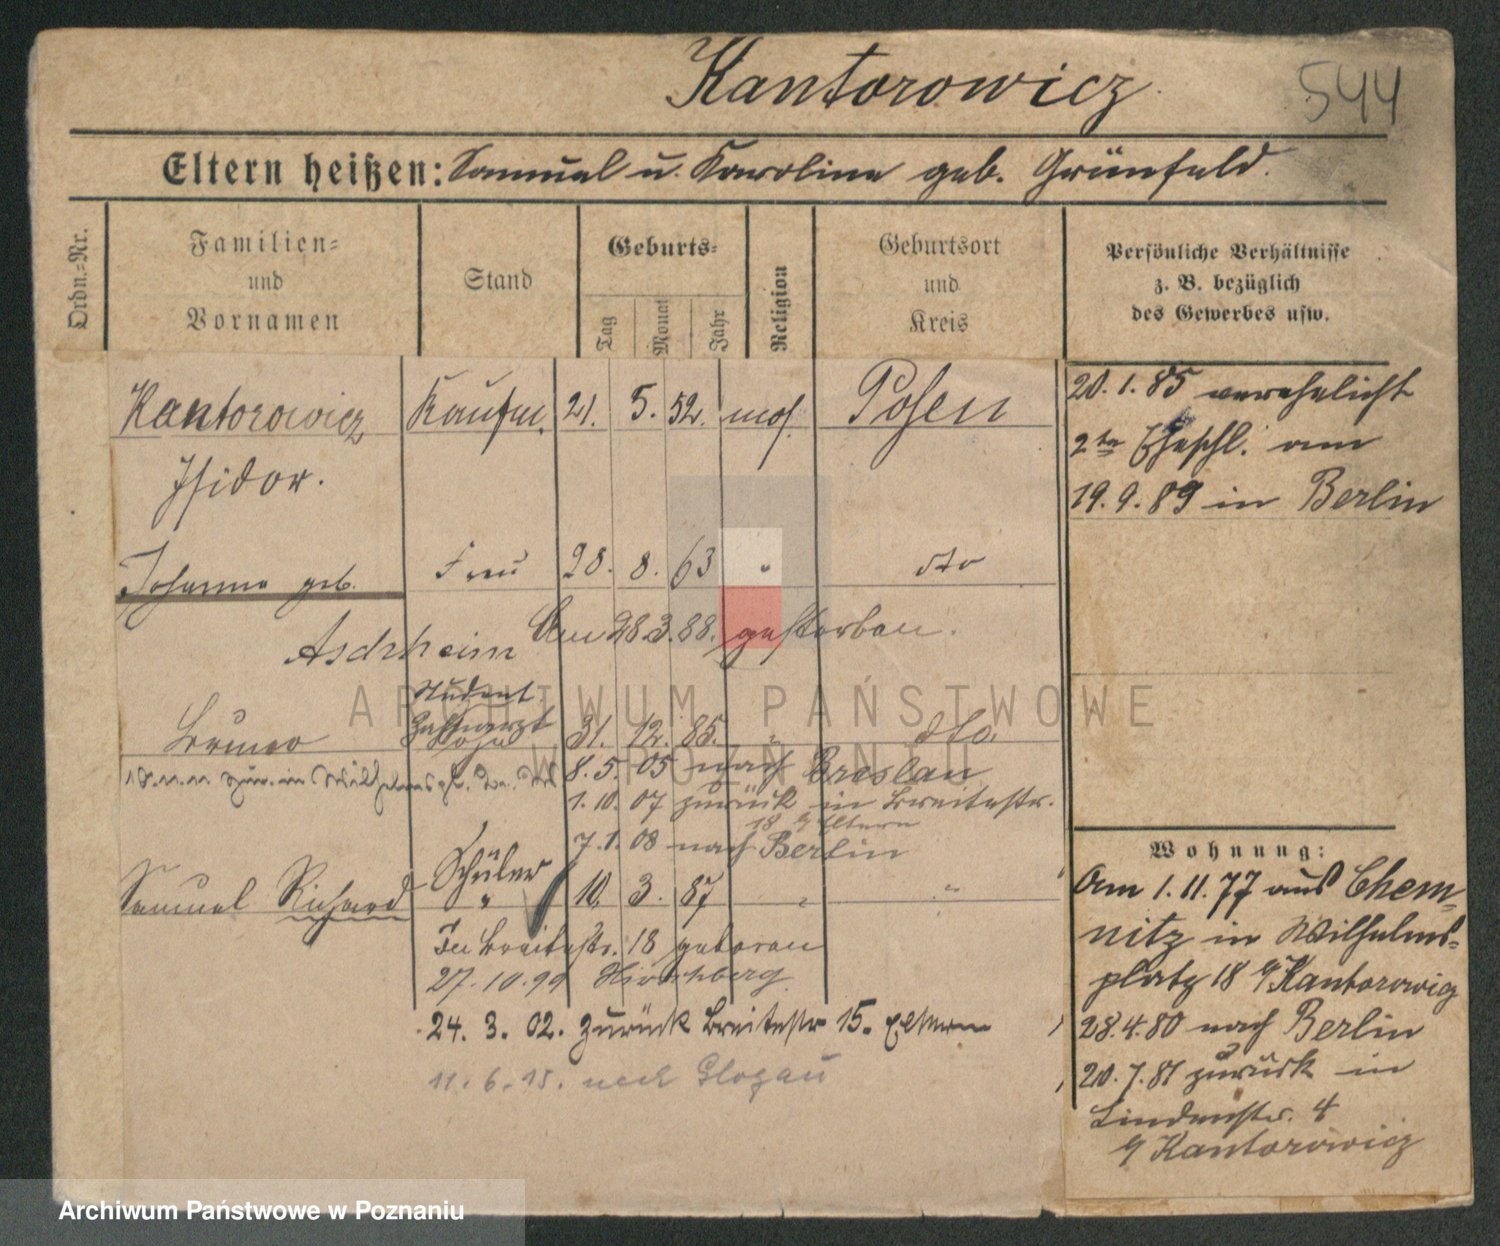 Kantorowicz
544
Eltern heißen: Samuel u. Karoline geb. Grünfeld.
Ordn.=Nr.
Familien=
und
Vornamen
Stand
Geburts=
Tag
Monat
Jahr
Religion
Geburtsort
und
Kreis
Persönliche Verhältnisse
z. B. bezüglich
des Gewerbes usw.
Kantorowicz Kaufm. 21. 5. 52. mos. Posen
Isidor.
Johanna geb. Frau 28. 8. 63 " dto
Aschheim Am 28.3.88. gestorben.
Student
Zahnarzt
Bruno Sohn 31. 12. 85. " dto
8. 5. 05 nach Breslau
1. 10. 07 zurück in Breitestr.
18 b/ Eltern
7. 1. 08 nach Berlin
Schüler
Samuel Richard " 10. 3. 87 " "
In Breitestr. 18 geboren
27. 10. 99 Hirschberg
24. 3. 02. zurück Breitestr 15. Eltern
11. 6. 15. nach Glogau
20. 1. 85 verehelicht
2te Eheschl. am
19. 9. 89 in Berlin
Wohnung:
Am 1. 11. 77 aus Chem=
nitz in Wilhelms=
platz 18 b/ Kantorowicz
28. 4. 80 nach Berlin
20. 7. 81 zurück in
Lindenstr. 4
b/ Kantorowicz
ARCHIWUM PAŃSTWOWE
W POZNANIU
Archiwum Państwowe w Poznaniu